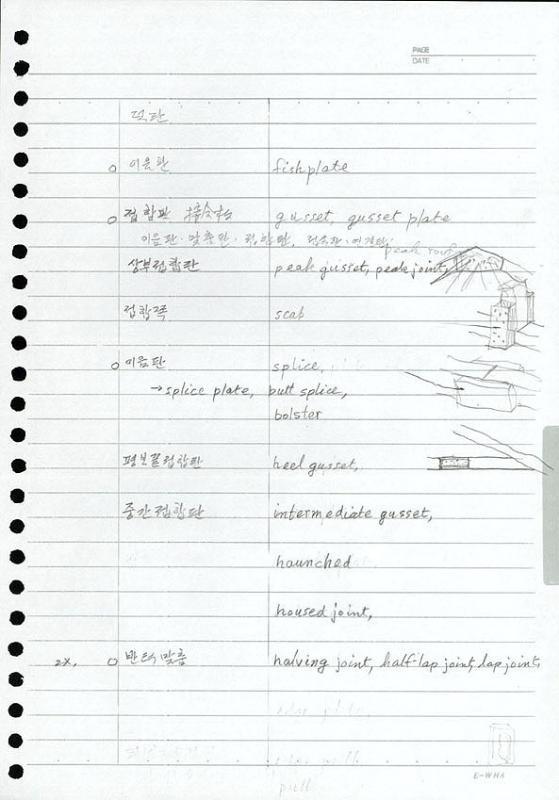 PAGE
DATE
덧판
이음판 fishplate
접합판 gusset, gusset plate
이음판·맞춤판·접합판, 접속판·연결판
peak roof
상부접합판 peak gusset, peak joint,
접합쪽 scab
이음판 splice,
→splice plate, butt splice,
bolster
평보끝접합판 heel gusset,
중간접합판 intermediate gusset,
haunched
housed joint,
반턱맞춤 halving joint, half-lap joint, lap joint,
E-WHA